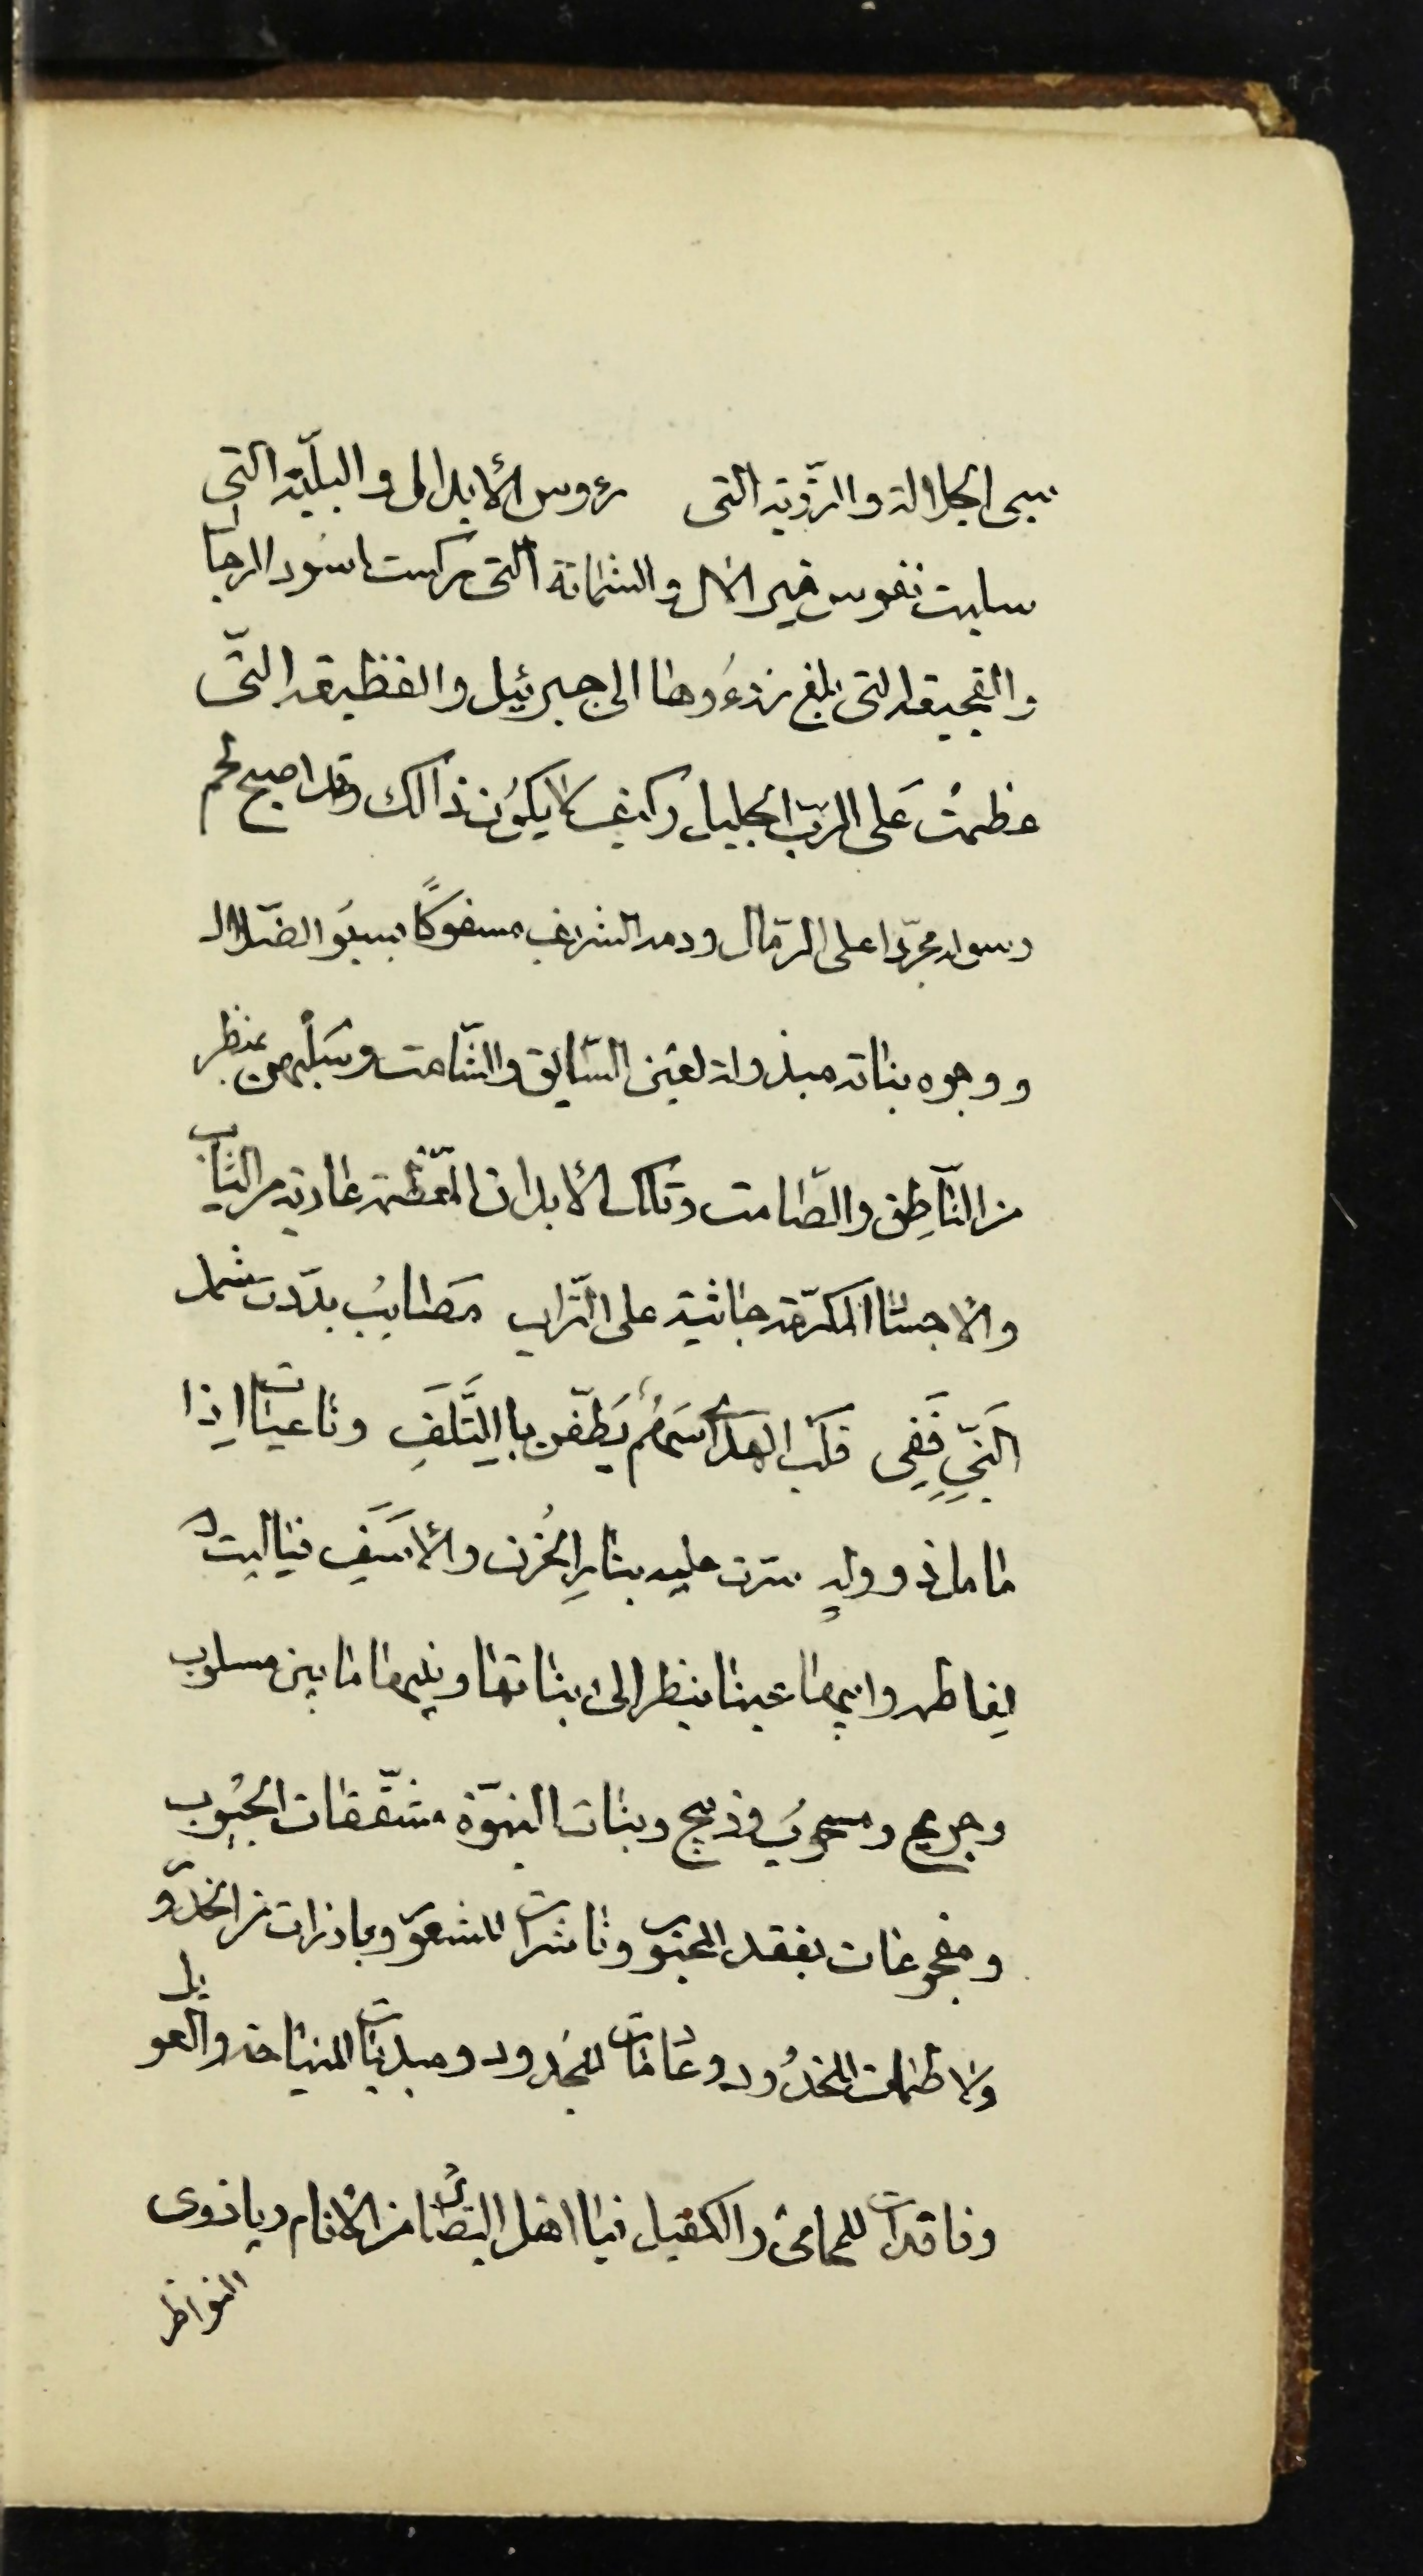 الجلالة والرّزية التى رءوس الأبدال والبليّة التى
سلبت نفوس خير الآل والشماتة التى نركست اسود الرجال
والفجيعة التى بلغ رزءُوها الى جبرئيل والفظيعة التّى
عظمتْ عَلى الربّ الجليل وكيف لا يكوُن ذالك وقد اصبح لحم
رسوله مجرّدا على الرّمال ودمه الشريف مسفوكًا بسيوف الضّلال
ووجوه بناته مبذولة لعين السّايق والشّامت وسَلْبهمن بمنظر
من النّاطِق والصّامت وتلك الأبدان المعّظمة عاريه من الثياب
والاجساد المكرّمة جاثية على التّراب مَصَايبُ بدّدت شمل
النَبِّي فَفِى قلب الهدى اسَهُمُ يَطفّن باالِتَّلَفِ وناعيات اذا
ما مل ذو ولهٍ سَرَت عليه بنارِ الحُزن والأسَفِ فياليت
لِفاطمه وابيها عينا ينظر الى بناتها وبنيها ما بين مسلوب
وجريح ومسحوب وذبيح وبنات النبوّة مشقّقات الجيُوب
ومفجوعات بفقد المحبوب وناشرات للشعور وبارزات من الخدور
ولاطمات للخدُود وعادمات للجُدود ومبديات للنياحة والعويل
وفاقدات للمحامى والكفيل فيا اهل البصائر من الأنام ويا ذوى
النواظر